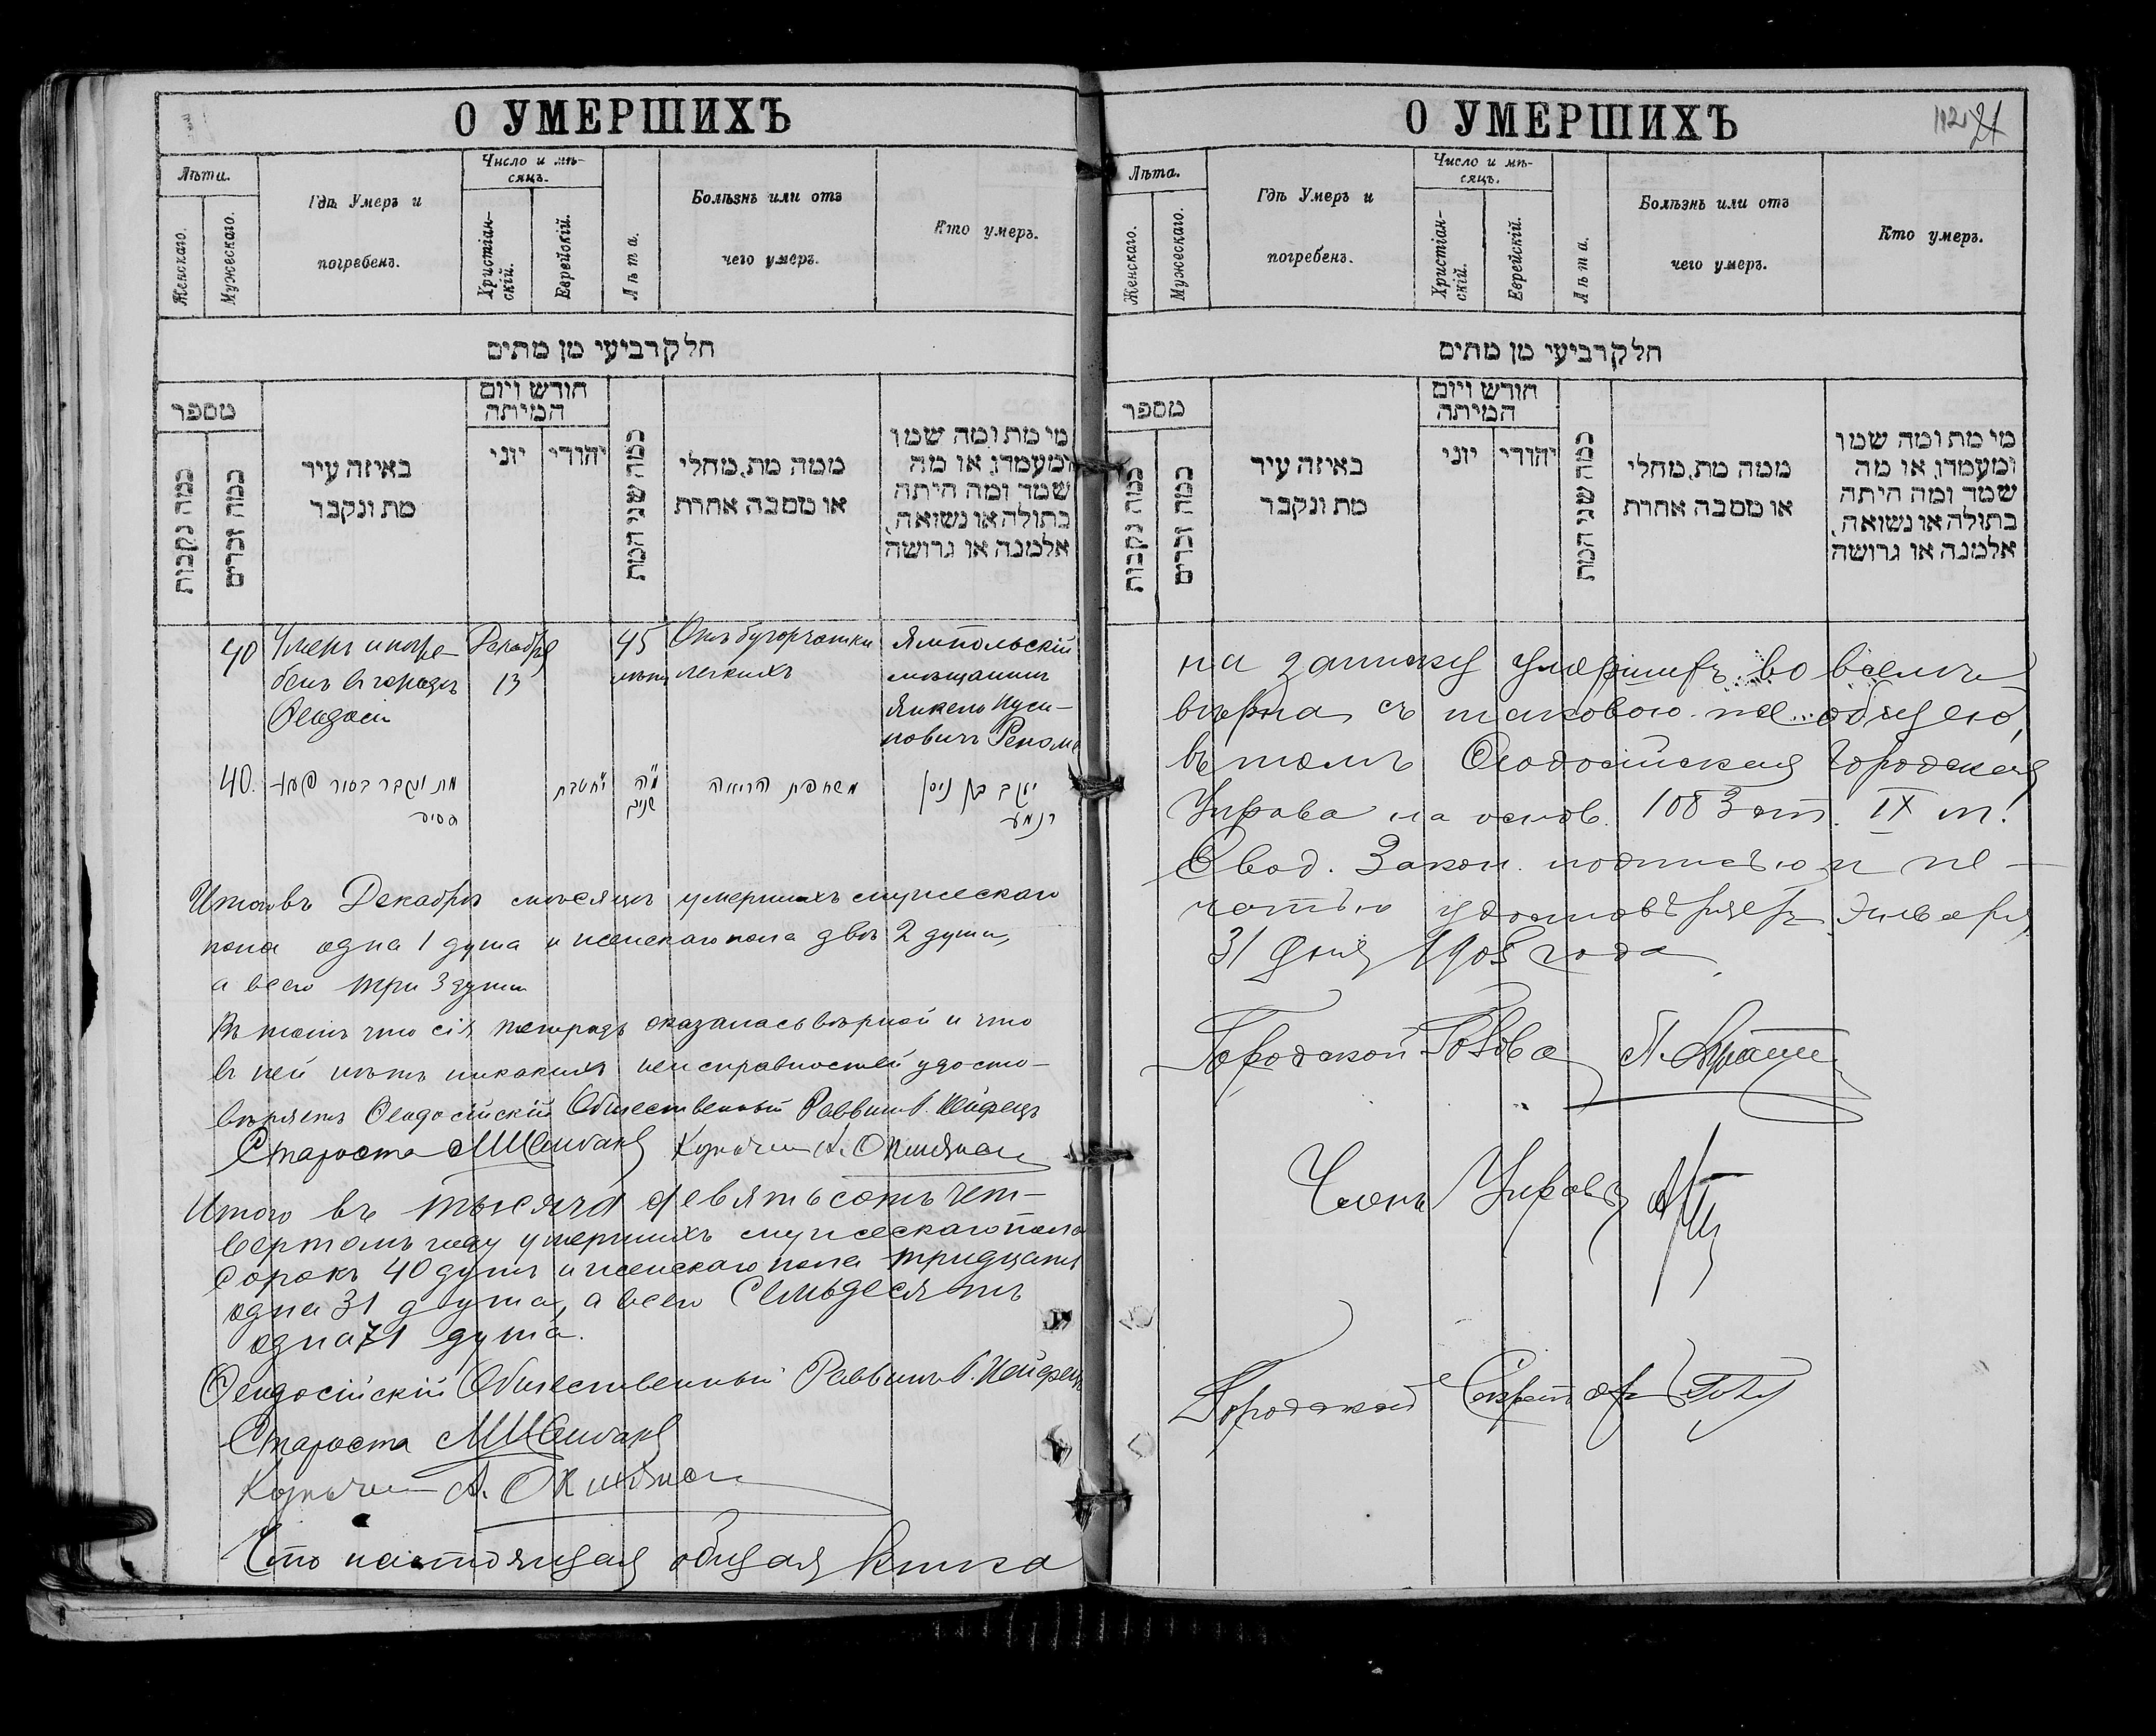 О УМЕРШИХЪ
Лѣта.
Женскаго.
Мужескаго.
Гдѣ Умеръ и
погребенъ.
Число и мѣ-
сяцъ.
Христіан-
скій.
Еврейскій.
Лѣта.
Болѣзнь или отъ
чего умеръ.
Кто умеръ.
חלק רביעי מן מתים
מספר
כמה נקבות
כמה זכרים
באיזה עיר
מת ונקבר
חודש ויום
המיתה
יוני
יהודי
כמה שני המת
ממה מת, מחלי
או מסבה אחרת
מי מת ומה שמו
ומעמדו, או מה
שמד ומה היתה
בתולה או נשואה,
אלמנה או גרושה
40 Умеръ и погре-
бенъ въ городѣ
Ѳеодосіи
Декабря
13
45
лѣтъ
Отъ бугорчатки
легкихъ
Ямпольскій
мѣщанинъ
Янкель Нуси-
новичъ
40. מת ונקבר בעיר
י״ח טבת
מ״ה
שנים
משחפת הריאה
יעקב בן ניסן
Итого въ Декабрѣ мѣсяцѣ умершихъ мужескаго
пола одна 1 душа и женскаго пола двѣ 2 души,
а всего три 3 души
Въ томъ что сія тетрадь оказалась вѣрной и что
въ ней нѣтъ никакихъ неисправностей удосто-
вѣряетъ Ѳеодосійскій Общественный Раввинъ
Староста
Казначей А.
Итого въ тысяча девятьсотъ чет-
вертомъ году умершихъ мужескаго пола
сорокъ 40 душъ и женскаго пола тридцать
одна 31 душа, а всего семьдесятъ
одна 71 душа.
Ѳеодосійскій Общественный Раввинъ
Староста
Казначей А.
Что настоящая общая книга
О УМЕРШИХЪ
21
Лѣта.
Женскаго.
Мужескаго.
Гдѣ Умеръ и
погребенъ.
Число и мѣ-
сяцъ.
Христіан-
скій.
Еврейскій.
Лѣта.
Болѣзнь или отъ
чего умеръ.
Кто умеръ.
חלק רביעי מן מתים
מספר
כמה נקבות
כמה זכרים
באיזה עיר
מת ונקבר
חודש ויום
המיתה
יוני
יהודי
כמה שני המת
ממה מת, מחלי
או מסבה אחרת
מי מת ומה שמו
ומעמדו, או מה
שמד ומה היתה
בתולה או נשואה,
אלמנה או גרושה
на записку умершихъ во всемъ
вѣрна съ таковою же общею,
въ томъ Ѳеодосійская Городская
Управа на основ. 1083 ст. IX т.
Свод. Закон. подписью и пе-
чатью удостовѣряетъ. Января
31 дня 1905 года
Городской Голова
Членъ Управы
Городской Секретарь